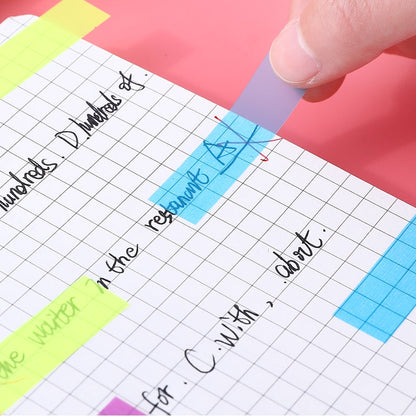 hundreds. D hundreds of.
the waiter in the restaurant A
for. C. with, about.